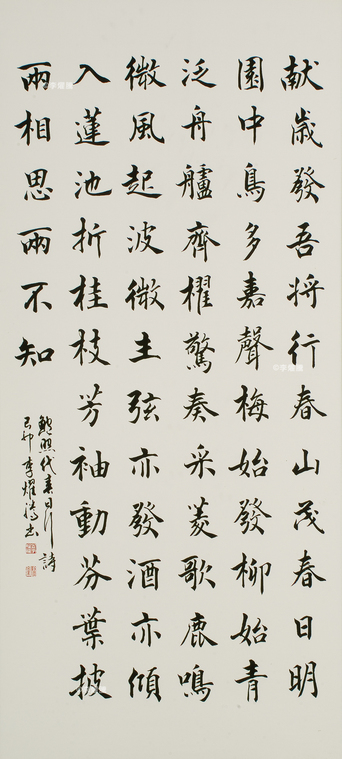 献歲發吾将行春山茂春日明
園中鳥多嘉聲梅始發柳始青
泛舟艫齊櫂驚奏采菱歌鹿鳴
微風起波微生弦亦發酒亦傾
入蓮池折桂枝芳袖動芬葉披
兩相思兩不知
鮑照代春日行詩
己卯李耀書